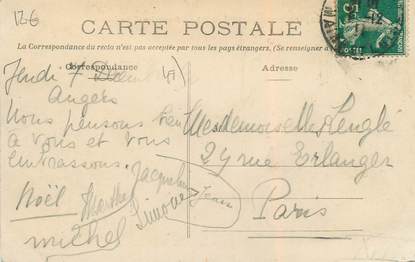 126
CARTE POSTALE
La Correspondance du recto n'est pas acceptée par tous les pays étrangers. (Se renseigner à
Correspondance
Adresse
Jeudi 7
Angers
Nous pensons bien
à vous et vous
embrassons.
Noël Marthe Jacqueline
Michel Simone Jean
Mesdemoiselles Lenglé
24 rue Erlanger
Paris